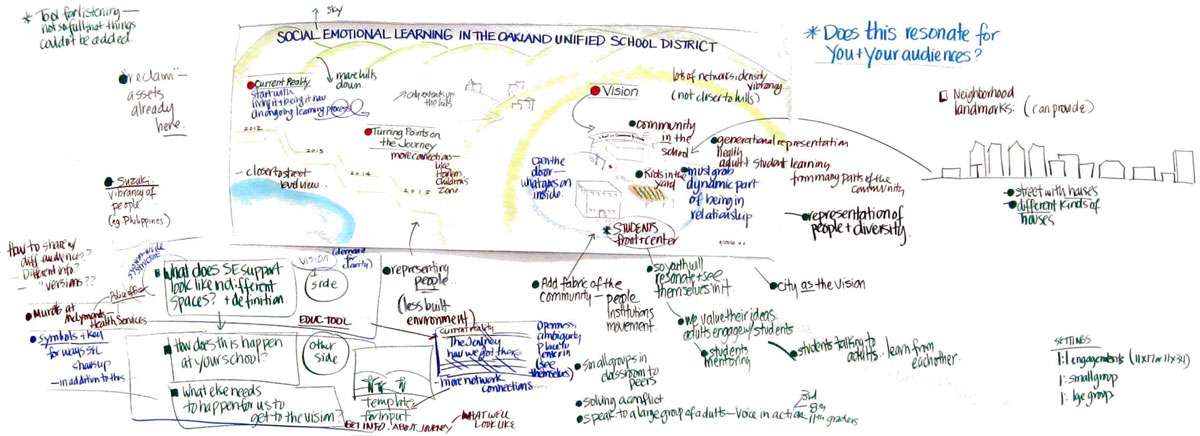 * Tool for listening —
not so full that things
couldn't be added.
sky
SOCIAL EMOTIONAL LEARNING IN THE OAKLAND UNIFIED SCHOOL DISTRICT
* Does this resonate for
You + Your audiences?
"reclaim" —
assets
already
here.
Current Reality
start with
living it + being it now
an ongoing learning process
move hills
down
lots of networks, density
vibrancy
(not closer to hills)
Vision
Neighborhood
landmarks. (can provide)
2012
2013
2014
2015
Turning Points on
the Journey
more connection —
like
Harlem
Childrens
Zone
— closer to street
level view
community
in the
school
generational representation
health
adult + student learning
from many parts of the
community
Open the
door —
what goes on
inside.
Kids in the
yard
must grab
dynamic part
of being in
relationship
* STUDENTS
front + center
representation of
people + diversity
street with houses
different kinds of
houses
Suzuki
vibrancy of
people
(eg. Philippines)
How to share w/
diff audiences?
— Different info?
— "versions"??
What does SE support
look like in different
spaces? + definition
VISION
(demand for
clarity)
one
side
EDUC TOOL
representing
people
(less built
environment)
Add fabric of the
community — people
institutions
movement
so youth will
resonate + see
themselves in it
City as the Vision
Murals at
Health Services
symbols + key
for ways SEL
shows up
— in addition to this
How does this happen
at your school?
other
side
What else needs
to happen for us to
get to the vision?
current reality
The Journey
how we got there
— more network
connections —
Openness,
ambiguity,
place to
enter in
(see
themselves)
template
for input
GET INFO. ABOUT JOURNEY
WHAT WE'LL
LOOK LIKE
we value their ideas.
adults engage w/ students
students
mentoring
students talking to
adults. learn from
each other.
small groups in
classroom to
peers
solving a conflict
speak to a large group of adults — voice in action
3rd
8th
11th graders
SETTINGS
1:1 engagements (11x17 or 11x34)
1: small group
1: lge group